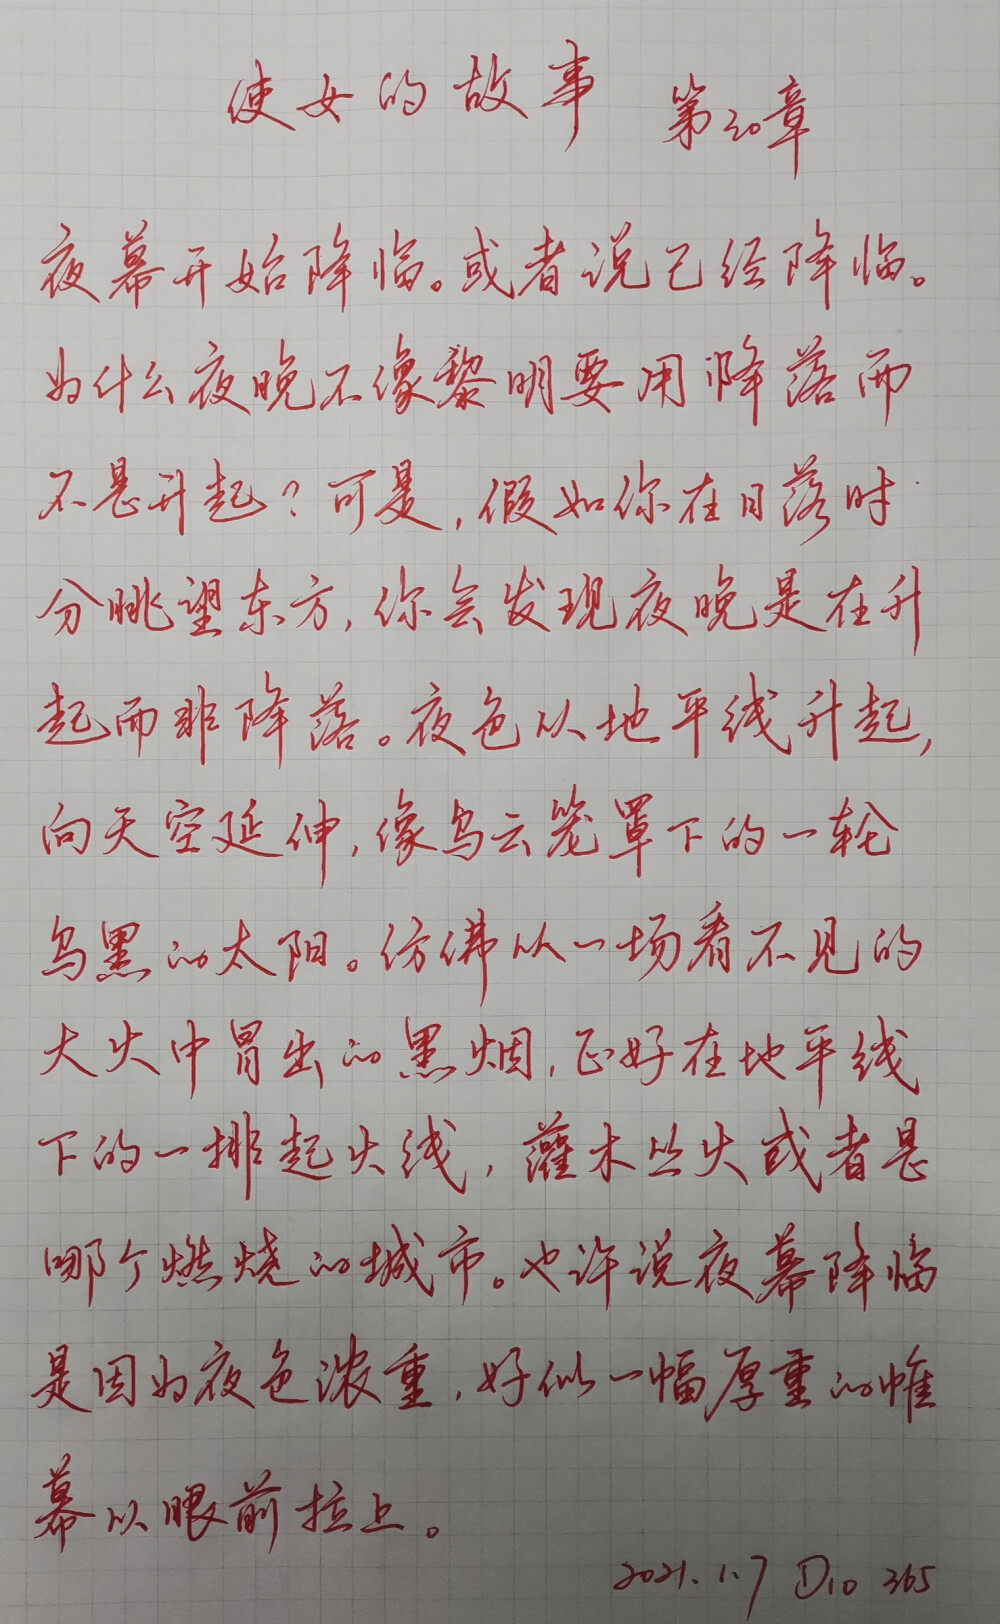 使女的故事 第30章
夜幕开始降临。或者说已经降临。
为什么夜晚不像黎明要用降落而
不是升起？可是，假如你在日落时
分眺望东方，你会发现夜晚是在升
起而非降落。夜色从地平线升起，
向天空延伸，像乌云笼罩下的一轮
乌黑的太阳。仿佛从一场看不见的
大火中冒出的黑烟，正好在地平线
下的一排起火线，灌木丛火或者是
哪个燃烧的城市。也许说夜幕降临
是因为夜色浓重，好似一幅厚重的帷
幕从眼前拉上。
2021.1.7 D10 365